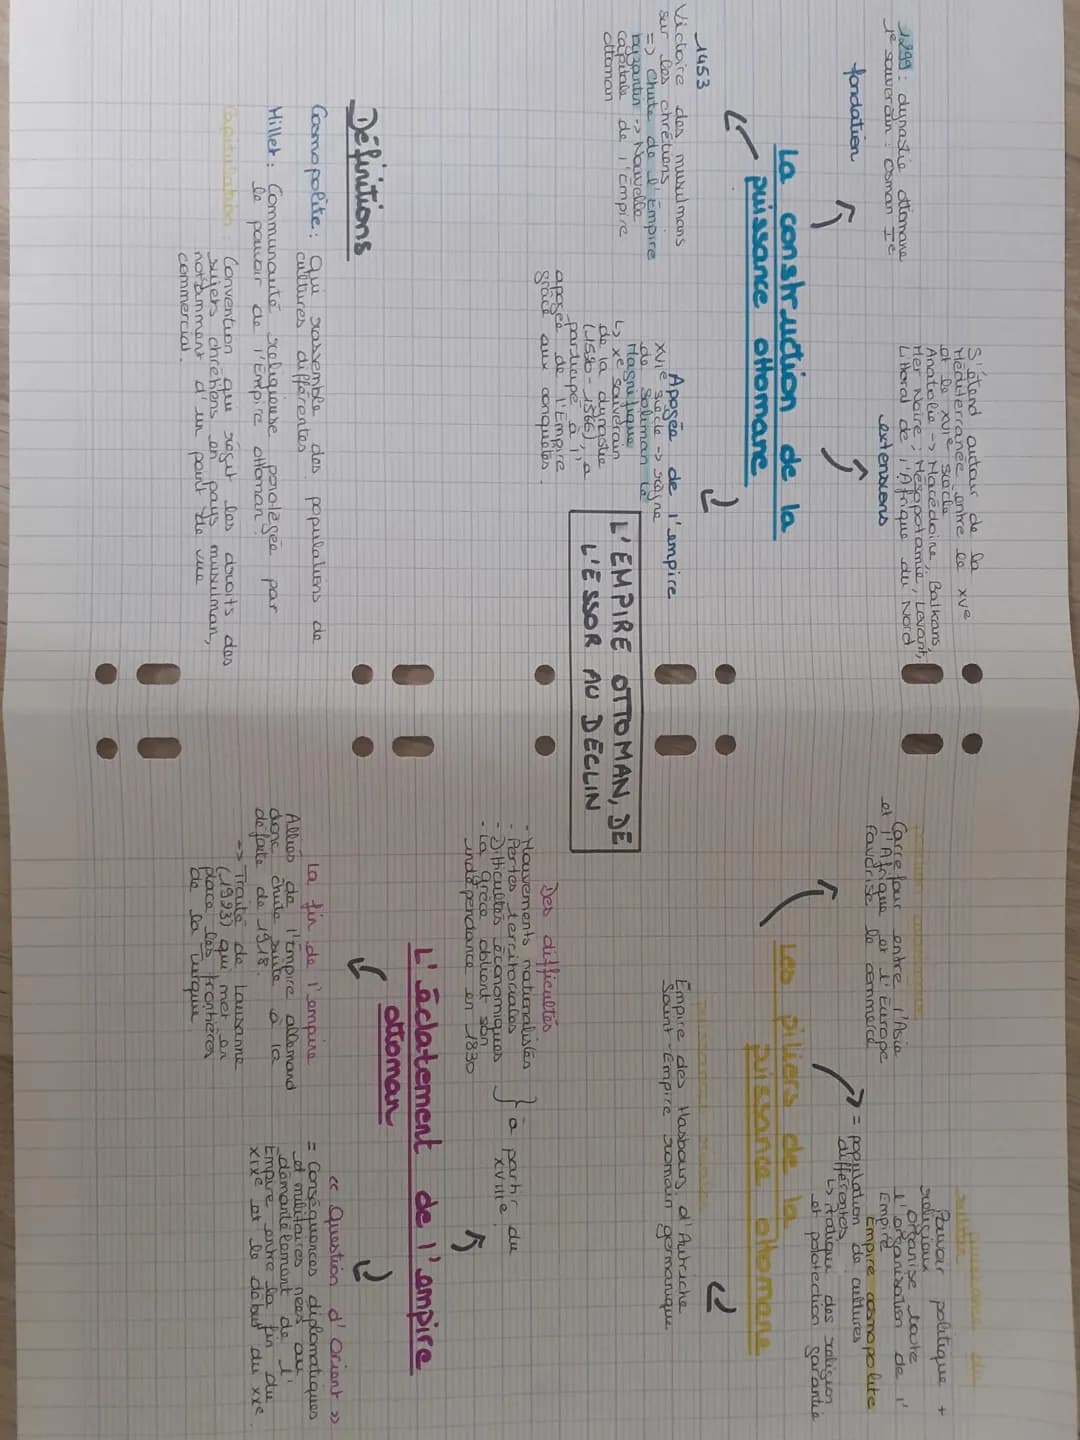 L'EMPIRE OTTOMAN, DE
L'ESSOR AU DECLIN
La construction de la
puissance ottomane
fondation
1299 : dynastie ottomane
1e souverain : Osman Ie
extensions
S'étend autour de la
Méditerranée entre le XVe
et le XVIe siècle
Anatolie -> Macédoine, Balkans,
Mer Noire, Mésopotamie, Levant,
Littoral de l'Afrique du Nord
1453
Victoire des musulmans
sur les chrétiens
=> Chute de l'Empire
byzantin -> Nouvelle
capitale de l'Empire
ottoman
Apogée de l'empire
XVIe siècle -> règne
de Soliman le
Magnifique
↳ Xe souverain
de la dynastie
(1520-1566), a
participé à l'
apogée de l'Empire
grâce aux conquêtes.
Définitions
Cosmopolite : Qui rassemble des populations de
cultures différentes
Millet : Communauté religieuse protégée par
le pouvoir de l'Empire ottoman
Capitulation : Convention qui régit les droits des
sujets chrétiens en pays musulman,
notamment d'un point de vue
commercial.
Les piliers de la
puissance ottomane
Carrefour entre l'Asie
et l'Afrique et l'Europe
Favorise le commerce
Pouvoir politique +
religieux
organise toute
l'organisation de l'
Empire
Empire cosmopolite
= population de cultures
différentes
↳ Pratique des religion
et protection garantie
Empire des Hasbours d'Autriche
Saint-Empire romain germanique
L'éclatement de l'empire
ottoman
Des difficultés
- Mouvements nationalistes
- Pertes territoriales
- Difficultés économiques
- La Grèce obtient son
indépendance en 1830
} à partir du
XVIIIe
La fin de l'empire
Alliés de l'Empire allemand
donc chute suite à la
défaite de 1918.
-> Traité de Lausanne
(1923) qui met en
place les frontières
de la Turquie
« Question d'Orient »
= Conséquences diplomatiques
et militaires nées au
démantèlement de l'
Empire entre la fin du
XIXe et le début du XXe